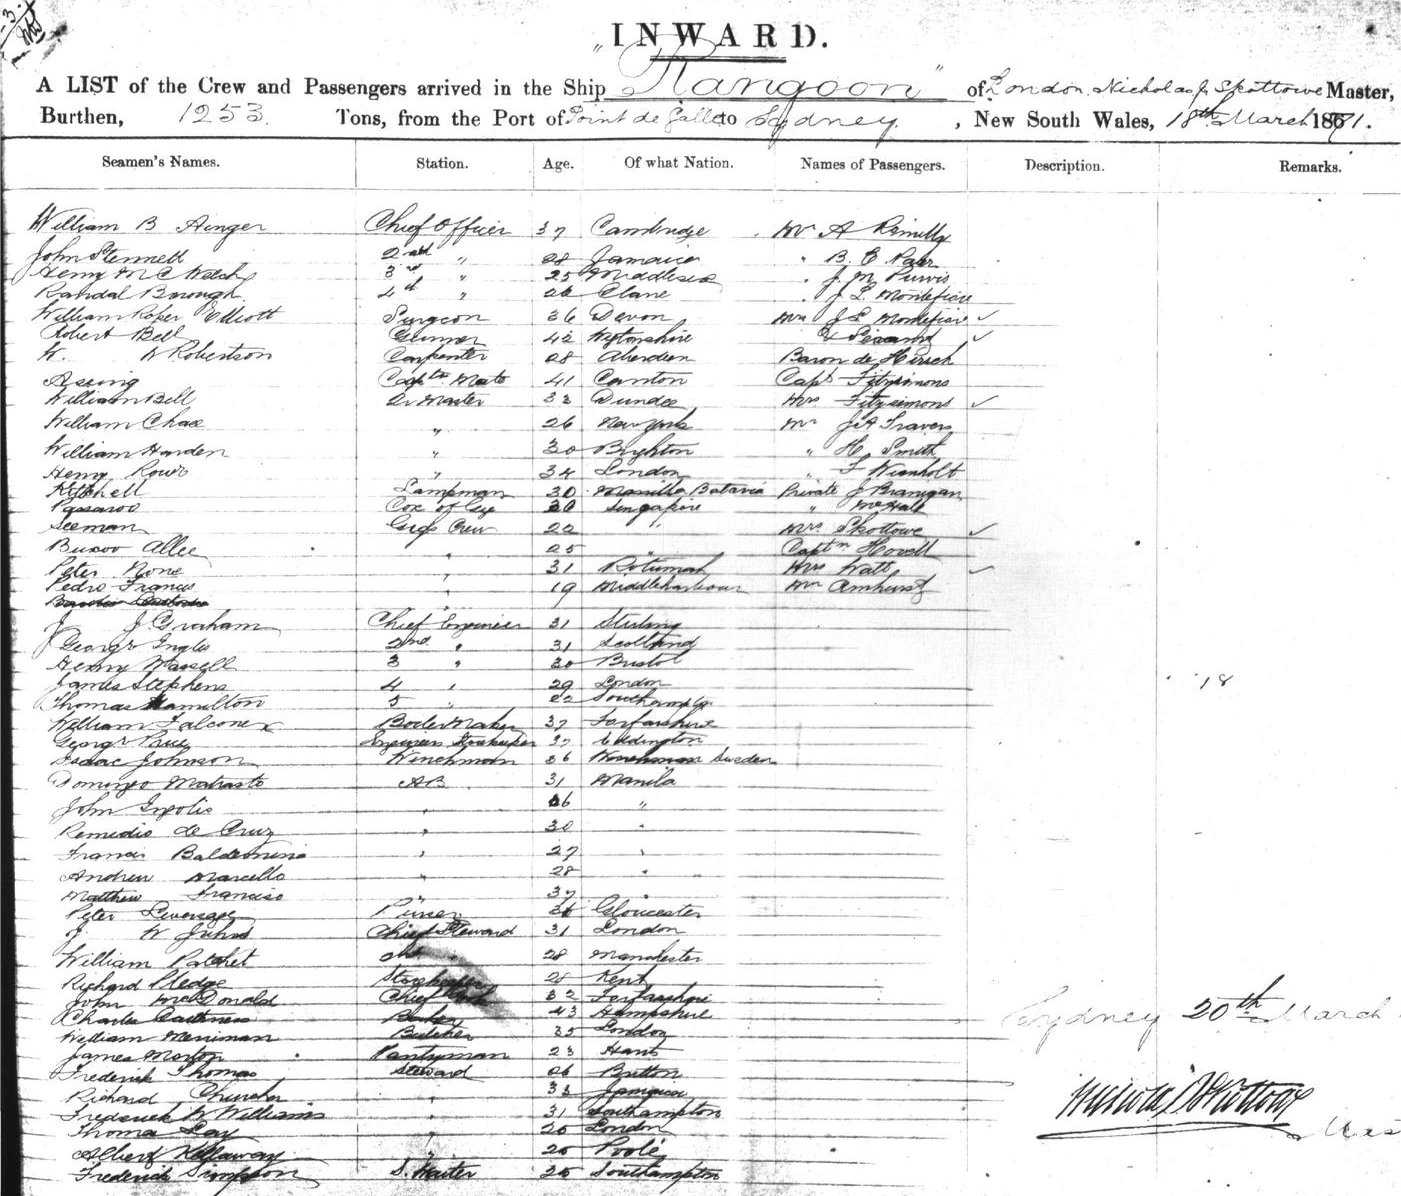 INWARD.
A LIST of the Crew and Passengers arrived in the Ship "Rangoon" of London, Nicholas J Skottowe Master,
Burthen, 1253. Tons, from the Port of Point de Galle to Sydney. , New South Wales, 18th March 1871.
Seamen's Names. Station. Age. Of what Nation. Names of Passengers. Description. Remarks.
William B Ainger Chief Officer 37 Cambridge Mr A
John Stennett 2nd " 28 Jamaica " B. E.
Henry Mc 3rd " 25 Middlesex " J. M. Purvis
Randal Borough 4th " 26 Clare " J L Montefiore
William Roper Elliott Surgeon 36 Devon Mrs J L Montefiore ✓
Robert Bell Gunner 42 & ✓
W. W Robertson Carpenter 28 Aberdeen Baron de Hirsch
Aseing Mate 41 Canton Capt Fitzsimons
William Bell Qr Master 33 Dundee Mrs Fitzsimons ✓
William Chase " 26 New York Mr J A Travers
William Harden " 30 Brighton " H. Smith
Henry Rowe " 34 London " F Wienholt
Kitchell Lampman 30 Manilla Batavia Private J Branigan
Cox of Gig 30 Singapore "
Seeman Gigs Crew 22 " Mrs Skottowe ✓
Buxoo Allee " 25 " Captn Hovell
Peter None " 31 Rotumah Mrs Watt ✓
Pedro Francis " 19 Middleharbour Mr Amhurst
J J Graham Chief Engineer 31 Stirling
George Ingles 2nd " 31 Scotland
Henry Wassell 3 " 30 Bristol
James Stephens 4 " 29 London 18
Thomas Hamilton 5 " 22 Southampton
William Falconer Boiler Maker 37 Forfarshire
George Engineers Storekeeper 37 Eddington
Isaac Johnson Winchman 26 Sweden
Domingo AB 31 Manila
John " 26 "
Remidio de Cruz " 30 "
Francis " 27 "
Andrew Marcello " 28 "
Matthew Francisco " 37 "
Peter Leverage Purser 36 Gloucester
J W Chief Steward 31 London
William Patchet 2nd " 28 Manchester
Richard Pledge Storekeeper 28 Kent
John McDonald Chief Cook 32 Forfarshire
Charles Baker 43 Hampshire
Sydney 20th March
William Merriman Butcher 35 London
James Morton Pantryman 23 Hants
Frederick Thomas Steward 26 Britton
Richard Churcher " 33 Jamaica
Frederick W Williams " 31 Southampton
Thomas Lay " 20 London
Albert Kellaway " 20 Poole
Frederick Simpson S. Waiter 25 Southampton